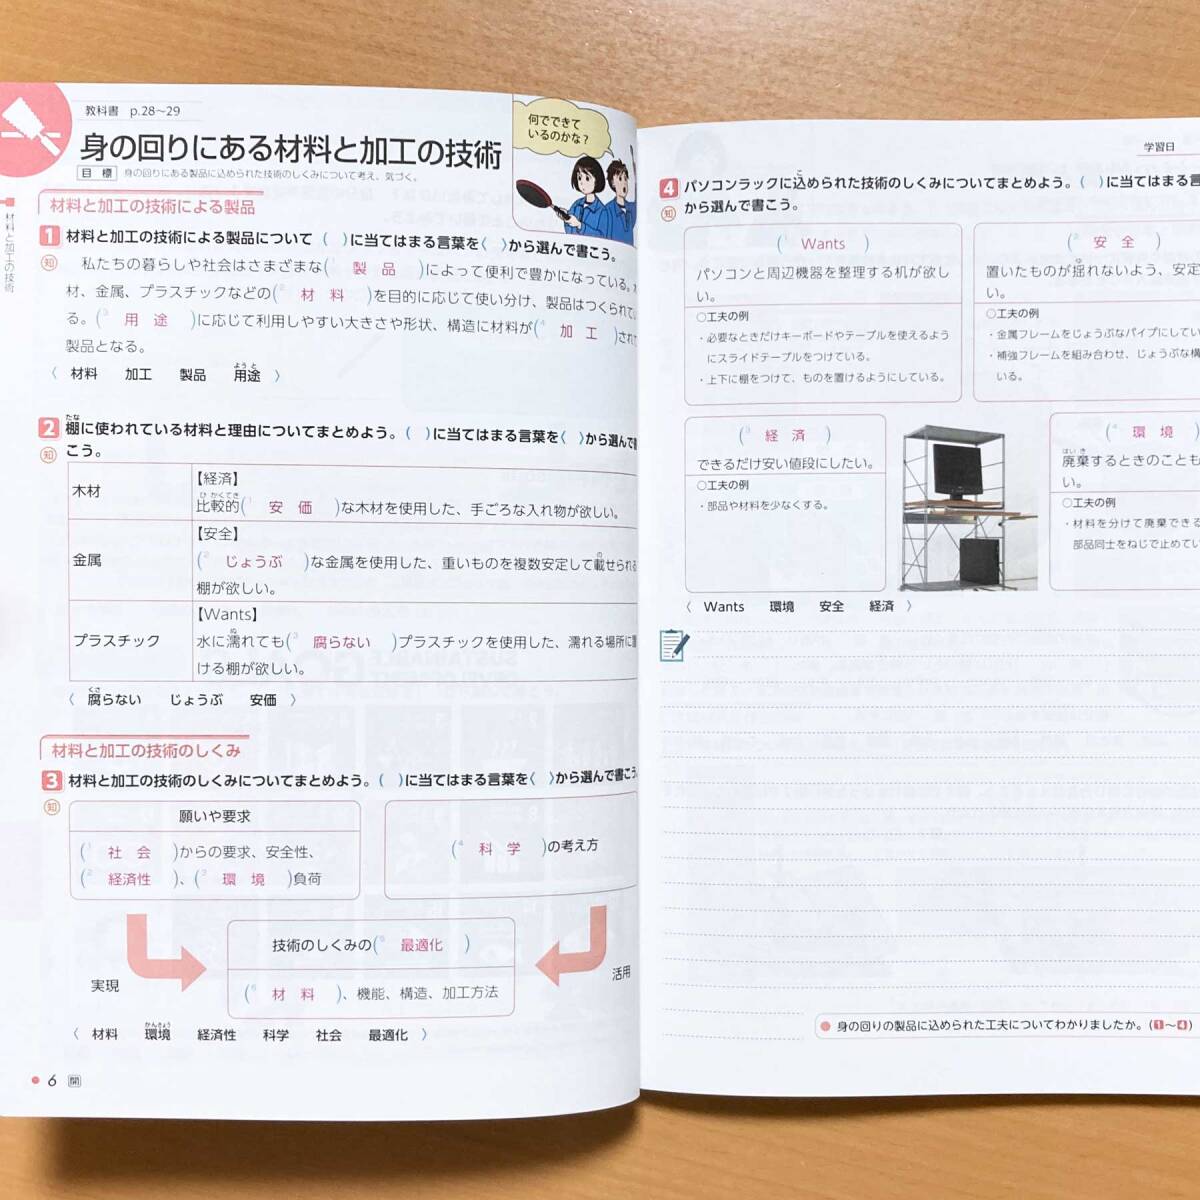 教科書 p.28～29
身の回りにある材料と加工の技術
目標 身の回りにある製品に込められた技術のしくみについて考え、気づく。
何でできて
いるのかな？
材料と加工の技術
材料と加工の技術による製品
1 材料と加工の技術による製品について（ ）に当てはまる言葉を〈 〉から選んで書こう。
知
私たちの暮らしや社会はさまざまな（1 製品 ）によって便利で豊かになっている。木
材、金属、プラスチックなどの（2 材料 ）を目的に応じて使い分け、製品はつくられてい
る。（3 用途 ）に応じて利用しやすい大きさや形状、構造に材料が（4 加工 ）されて
製品となる。
〈 材料 加工 製品 用途 〉
ようと
2 棚に使われている材料と理由についてまとめよう。（ ）に当てはまる言葉を〈 〉から選んで書
たな
知
こう。
木材
【経済】
比較的（1 安価 ）な木材を使用した、手ごろな入れ物が欲しい。
ひかくてき
金属
【安全】
（2 じょうぶ ）な金属を使用した、重いものを複数安定して載せられる
の
棚が欲しい。
プラスチック
【Wants】
水に濡れても（3 腐らない ）プラスチックを使用した、濡れる場所に置
ぬ
ける棚が欲しい。
〈 腐らない じょうぶ 安価 〉
くさ
材料と加工の技術のしくみ
3 材料と加工の技術のしくみについてまとめよう。（ ）に当てはまる言葉を〈 〉から選んで書こう。
知
願いや要求
（1 社会 ）からの要求、安全性、
（2 経済性 ）、（3 環境 ）負荷
（4 科学 ）の考え方
技術のしくみの（5 最適化 ）
（6 材料 ）、機能、構造、加工方法
実現
活用
〈 材料 環境 経済性 科学 社会 最適化 〉
かんきょう
6 開
学習日
4 パソコンラックに込められた技術のしくみについてまとめよう。（ ）に当てはまる言
こ
知
から選んで書こう。
（1 Wants ）
パソコンと周辺機器を整理する机が欲し
い。
○工夫の例
・必要なときだけキーボードやテーブルを使えるよう
にスライドテーブルをつけている。
・上下に棚をつけて、ものを置けるようにしている。
（2 安全 ）
置いたものが揺れないよう、安定
ゆ
い。
○工夫の例
・金属フレームをじょうぶなパイプにしてい
・補強フレームを組み合わせ、じょうぶな構
いる。
（3 経済 ）
できるだけ安い値段にしたい。
○工夫の例
・部品や材料を少なくする。
（4 環境 ）
廃棄するときのことも
はいき
い。
○工夫の例
・材料を分けて廃棄できる
部品同士をねじで止めてい
〈 Wants 環境 安全 経済 〉
身の回りの製品に込められた工夫についてわかりましたか。（1～4）